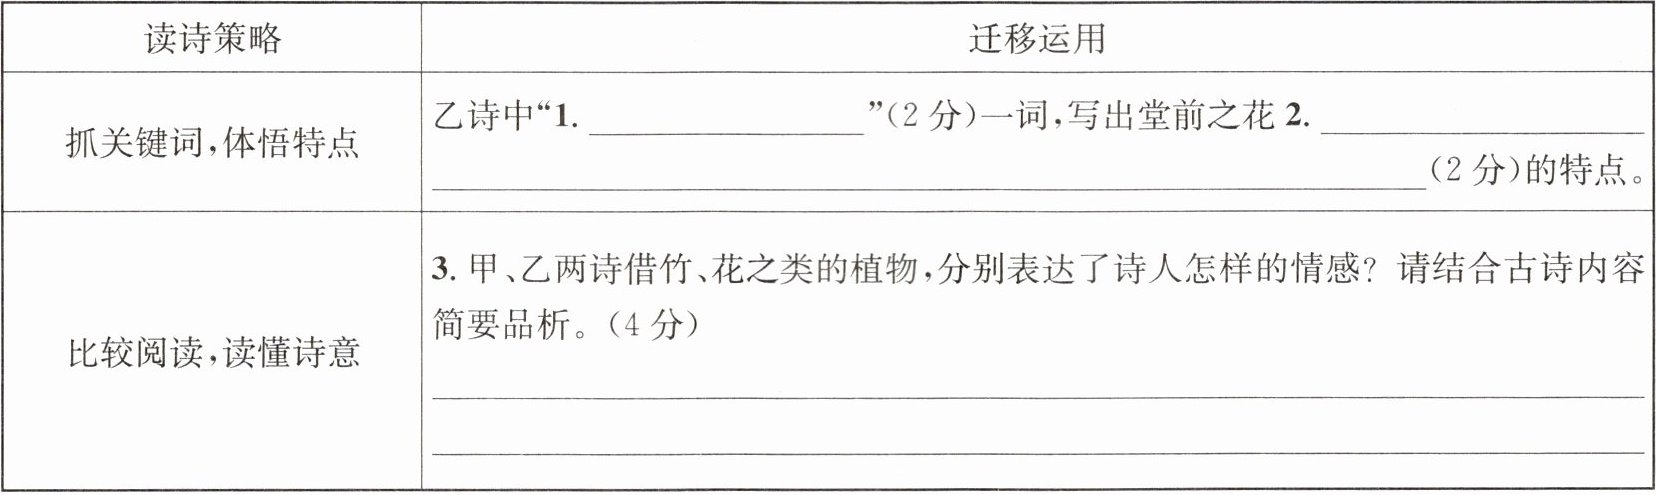 读诗策略
迁移运用
抓关键词,体悟特点
乙诗中“1. ”(2分)一词,写出堂前之花2.
(2分)的特点。
比较阅读,读懂诗意
3. 甲、乙两诗借竹、花之类的植物,分别表达了诗人怎样的情感? 请结合古诗内容
简要品析。(4分)